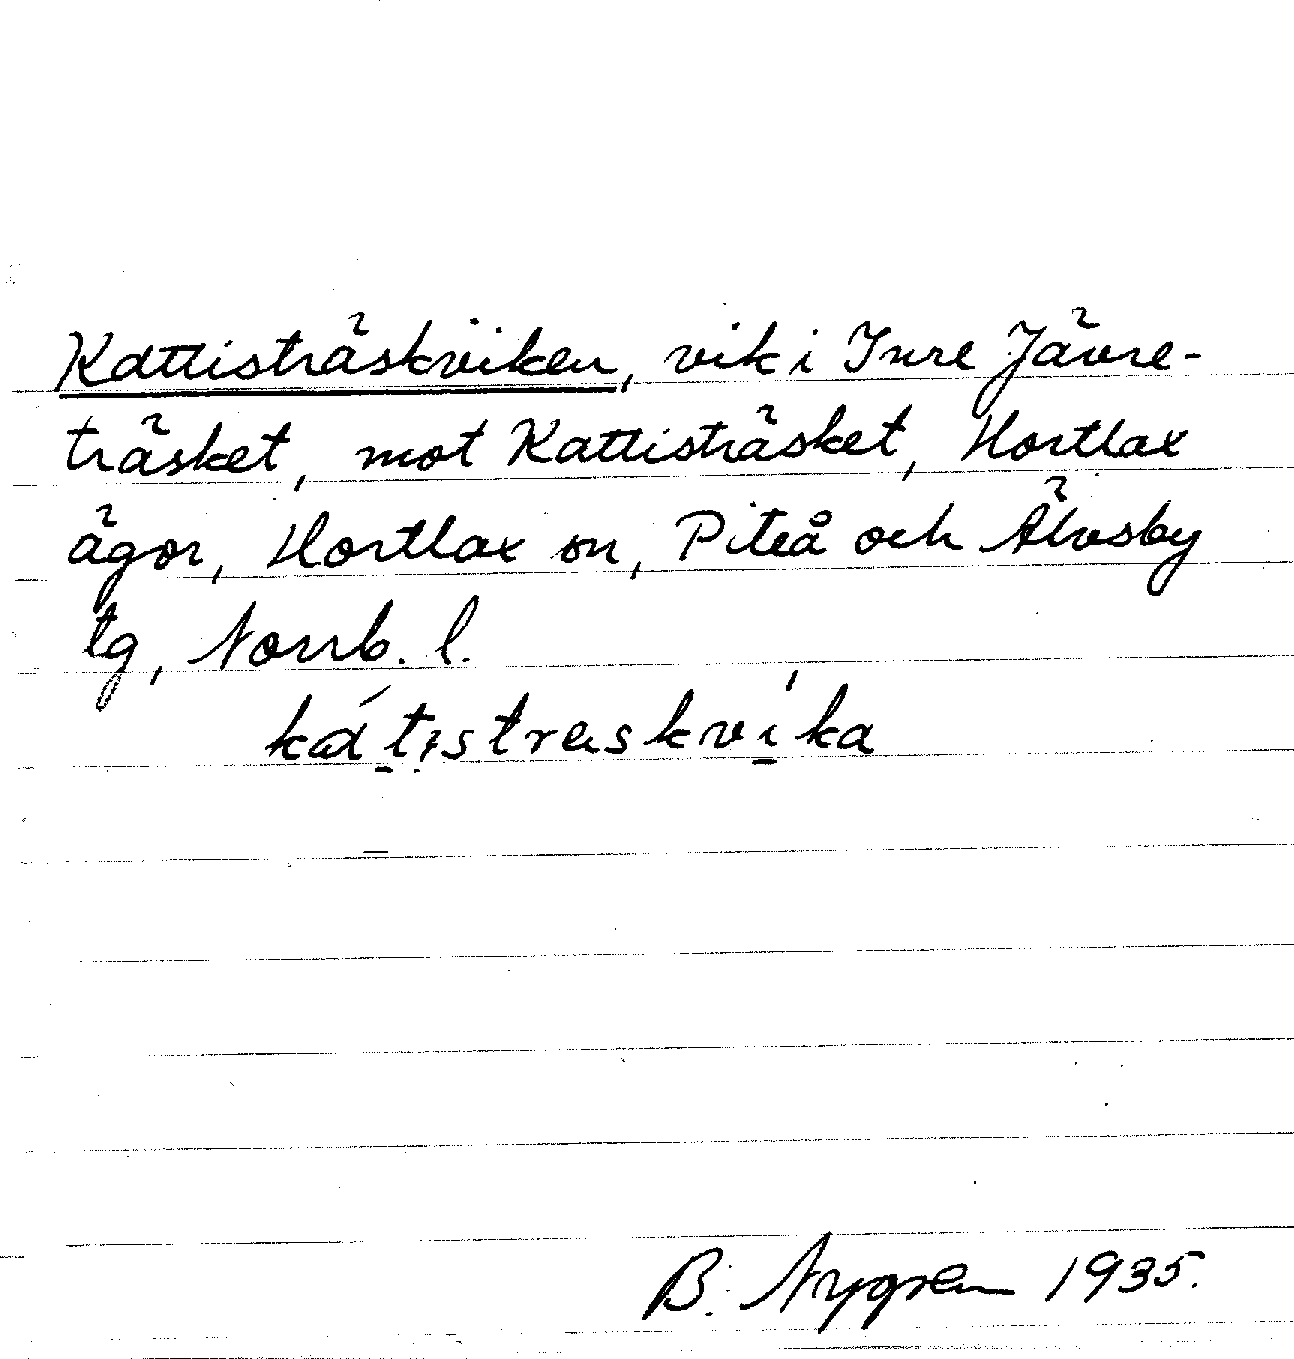 Kattisträskviken, vik i Inre Jävre-
träsket, mot Kattisträsket, Hortlax
ägor, Hortlax sn, Piteå och Älvsby
tg, Norrb. l.
kátistræskvíka
B. Nygren 1935.